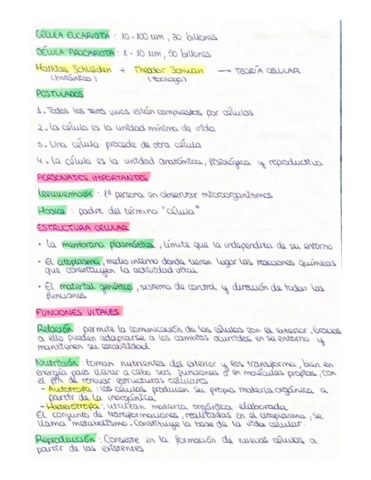 CÉLULA EUCARIOTA : 10-100 μm, 30 billones
CÉLULA PROCARIOTA : 1-10 μm, 50 billones
Mathias Schleiden + Theodor Schwan → TEORÍA CELULAR
(botánico) (zoólogo)
POSTULADOS
1. Todos los seres vivos están compuestos por células
2. La célula es la unidad mínima de vida
3. Una célula procede de otra célula
4. La célula es la unidad anatómica, fisiológica y reproductiva
PERSONAJES IMPORTANTES
Leeuwenhoek : 1ª persona en observar microorganismos
Hooke : padre del término "célula"
ESTRUCTURA CELULAR
· La membrana plasmática, límite que la independiza de su entorno
· El citoplasma, medio interno donde tienen lugar las reacciones químicas
que constituyen la actividad vital
· El material genético, sistema de control y dirección de todas las
funciones
FUNCIONES VITALES
Relación : permite la comunicación de las células con el exterior. Gracias
a ella pueden adaptarse a los cambios ocurridos en su entorno y
mantienen su estabilidad
Nutrición toman nutrientes del exterior y los transforma, bien en
energía para llevar a cabo sus funciones o en moléculas propias, con
el fin de renovar estructuras celulares
- Autótrofa : las células producen su propia materia orgánica a
partir de la inorgánica
- Heterótrofa : utilizan materia orgánica elaborada
El conjunto de transformaciones, realizadas en el citoplasma, se
llama metabolismo. Constituye la base de la vida celular.
Reproducción : Consiste en la formación de nuevas células a
partir de las existentes